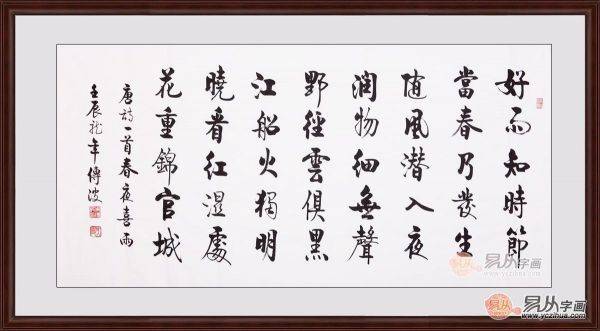 好雨知時節
當春乃發生
随風潜入夜
潤物細無聲
野徑雲俱黑
江船火獨明
曉看紅濕處
花重錦官城
唐詩一首春夜喜雨
壬辰龍年傳波
易从字画
www.yczihua.com
易从字画
www.yczihua.com